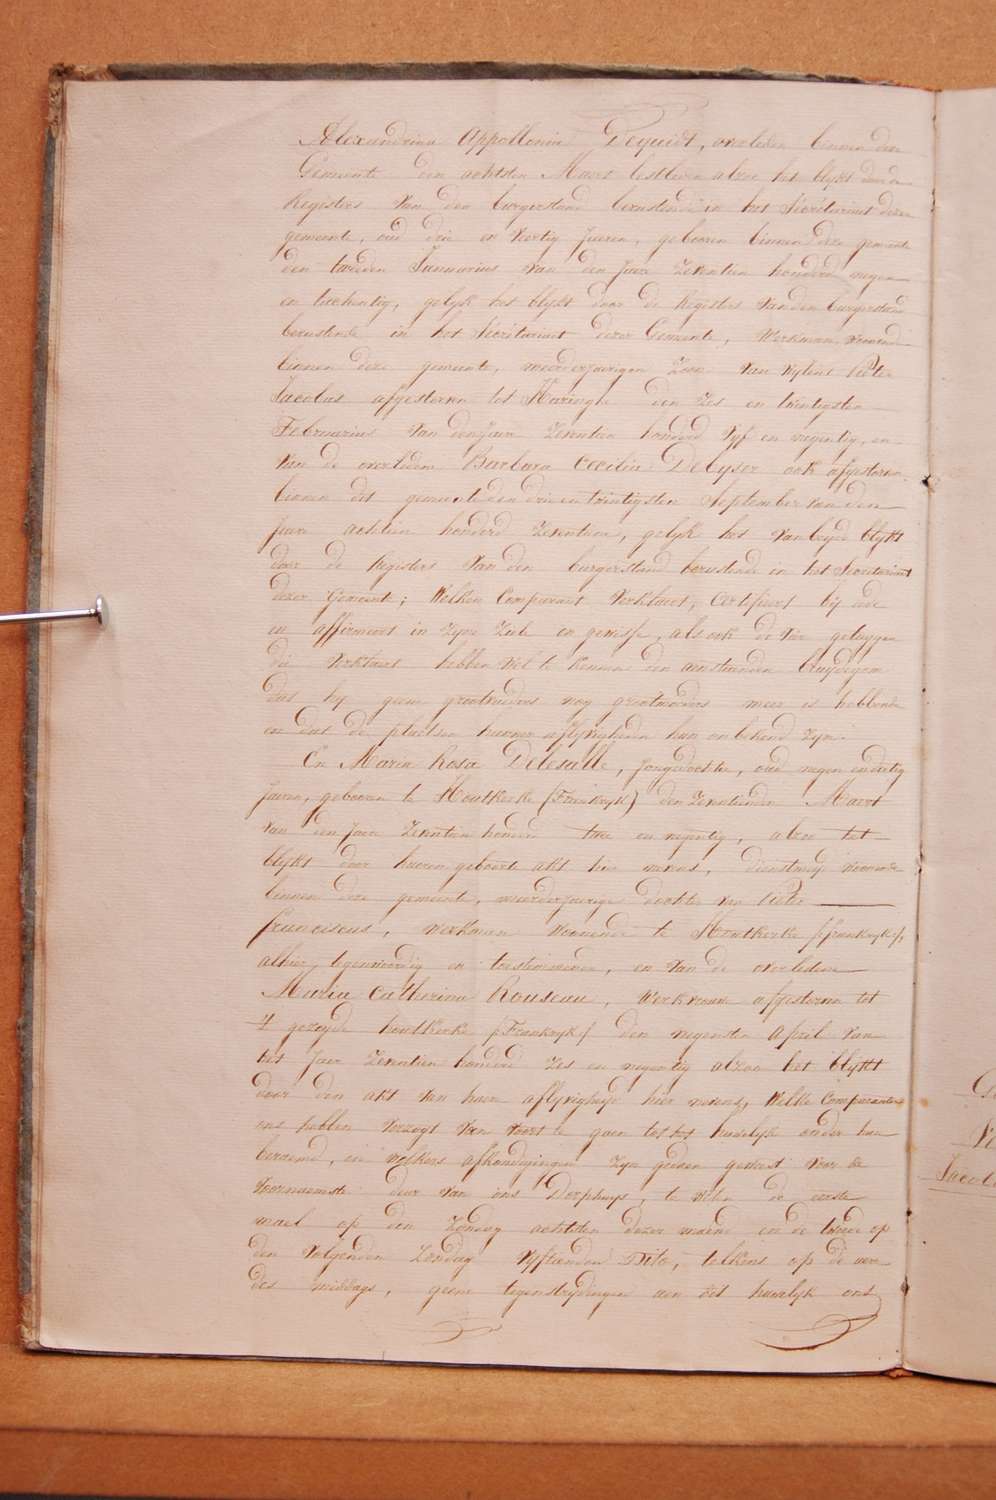 Alexandrina Appollonia Dequidt, overleden binnen dese
Gemeente den achtsten Maert lestleden alzoo het blykt door de
Registers van den burgerstand berustende in het Secretariaet dezer
gemeente, oud drie en veertig Jaeren, gebooren binnen deze gemeente
den tweeden Januarius van den Jaere Zeventien honderd negen
en tachentig, gelyk het blykt door de Registers van den burgerstand
berustende in het Secretariaet dezer Gemeente, Werkman, woonende
binnen deze gemeente, meerderjaerigen Zoon van wylent Pieter
Jacobus afgestorven tot Haringhe den Zes en twintigsten
Februarius van den Jaere Zeventien honderd vyf en negentig, en
van de overledene Barbara Cecilia Debyser ook afgestorven
binnen dit gemeente den drie en twintigsten September van den
Jaere achtien honderd Zeventien, gelyk het van beyde blykt
door de Registers van den burgerstand berustende in het Secretariaet
dezer Gemeente; Welken Comparant verklaert, Certifieert by eede
en affirmeert in zyne Ziele en gewisse, als ook de vier getuygen
die verklaert hebben wel te kennen den aenstaenden bruydegom
dat hy geene grootvaders nog grootmoeders meer is hebbende
en dat de plaetsen hunner aflyvigheden hun onbekend zyn.
En Maria Rosa Delesalle, Jongedochter, oud negen en dertig
Jaeren, gebooren te Houtkerke (Frankryk) den Zeventienden Maert
van den Jaere Zeventien honderd twee en negentig, alzoo het
blykt door haeren geboorte akt hier nevens, dienstmeyd woonende
binnen deze gemeente, meerderjaerige dochter van Pieter
franciscus, Werkman woonende te Houtkerke (:frankryk:),
alhier tegenwoordig en toestemmende, en van de overledene
Maria Catherina Rouseau, Werkvrouw afgestorven tot
't gezeyde houtkerke (:Frankryk:) den negensten April van
het Jaer Zeventien honderd Zes en negentig alzoo het blykt
door den akt van haere aflyvigheyd hier nevens, Welke Comparanten
ons hebben verzogt van voort te gaen tot het huwelyk onder hun
beraemd, en welkers afkondigingen zyn gedaen geweest voor de
voornaemste deur van ons Dorphuys, te weten de eerste
mael op den Zondag achtsten dezer maend en de tweede op
den volgenden Zondag vyftienden Dito, telkens op de ure
des middags, geene tegenstrydingen aen dit huwelyk ons